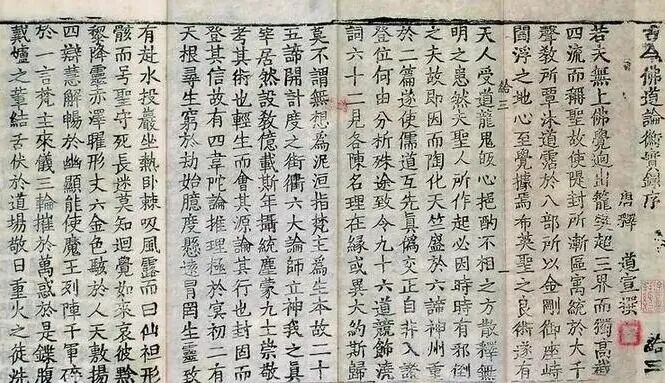 古今佛道論衡實錄序
唐釋 道宣撰
若夫無上佛覺迥出籠樊超三界而獨高截
四流而稱聖故使隄封所漸區寓統於大千
聲教所覃沐道霑於八部所以金剛御座峙
閻浮之地心至覺據焉布英聖之良術遂有
天人受道龍鬼皈心挹酌不相之方散釋無
明之患然夫聖人所作起必因時時有邪倒
之夫故即因而陶化天竺盛於六諦神州重
於二篇遂使儒道互先真偽交正自非入證
登位何由分析殊途致令九十六道競飾澆
詞六十二見各陳名理在緣或異大約斯歸
莫不謂無想為泥洹指梵主為生本故二十
五諦開計度之街衢六大論師立神我之真
宰居然設教億載斯年攝統塵蒙九土崇敬
考其術也輕生而會其源論其行也封固而
登其信故有四韋陀論推理極於冥初二有
天根尋生窮於劫始臆度懸遠冒罔生靈致
有赴水投巖坐熱臥棘吸風露而曰仙袒形
骸而号聖守死長迷莫知迴覺如來哀彼黔
黎降靈赤澤曜形丈六金色駭於人天敷揚
四辯慧解暢於幽顯能使魔王列陣千軍碎
於一言梵主來儀三輪摧於萬惑於是鍱腹
戴爐之輩結舌伏於道場敬日重火之徒洗